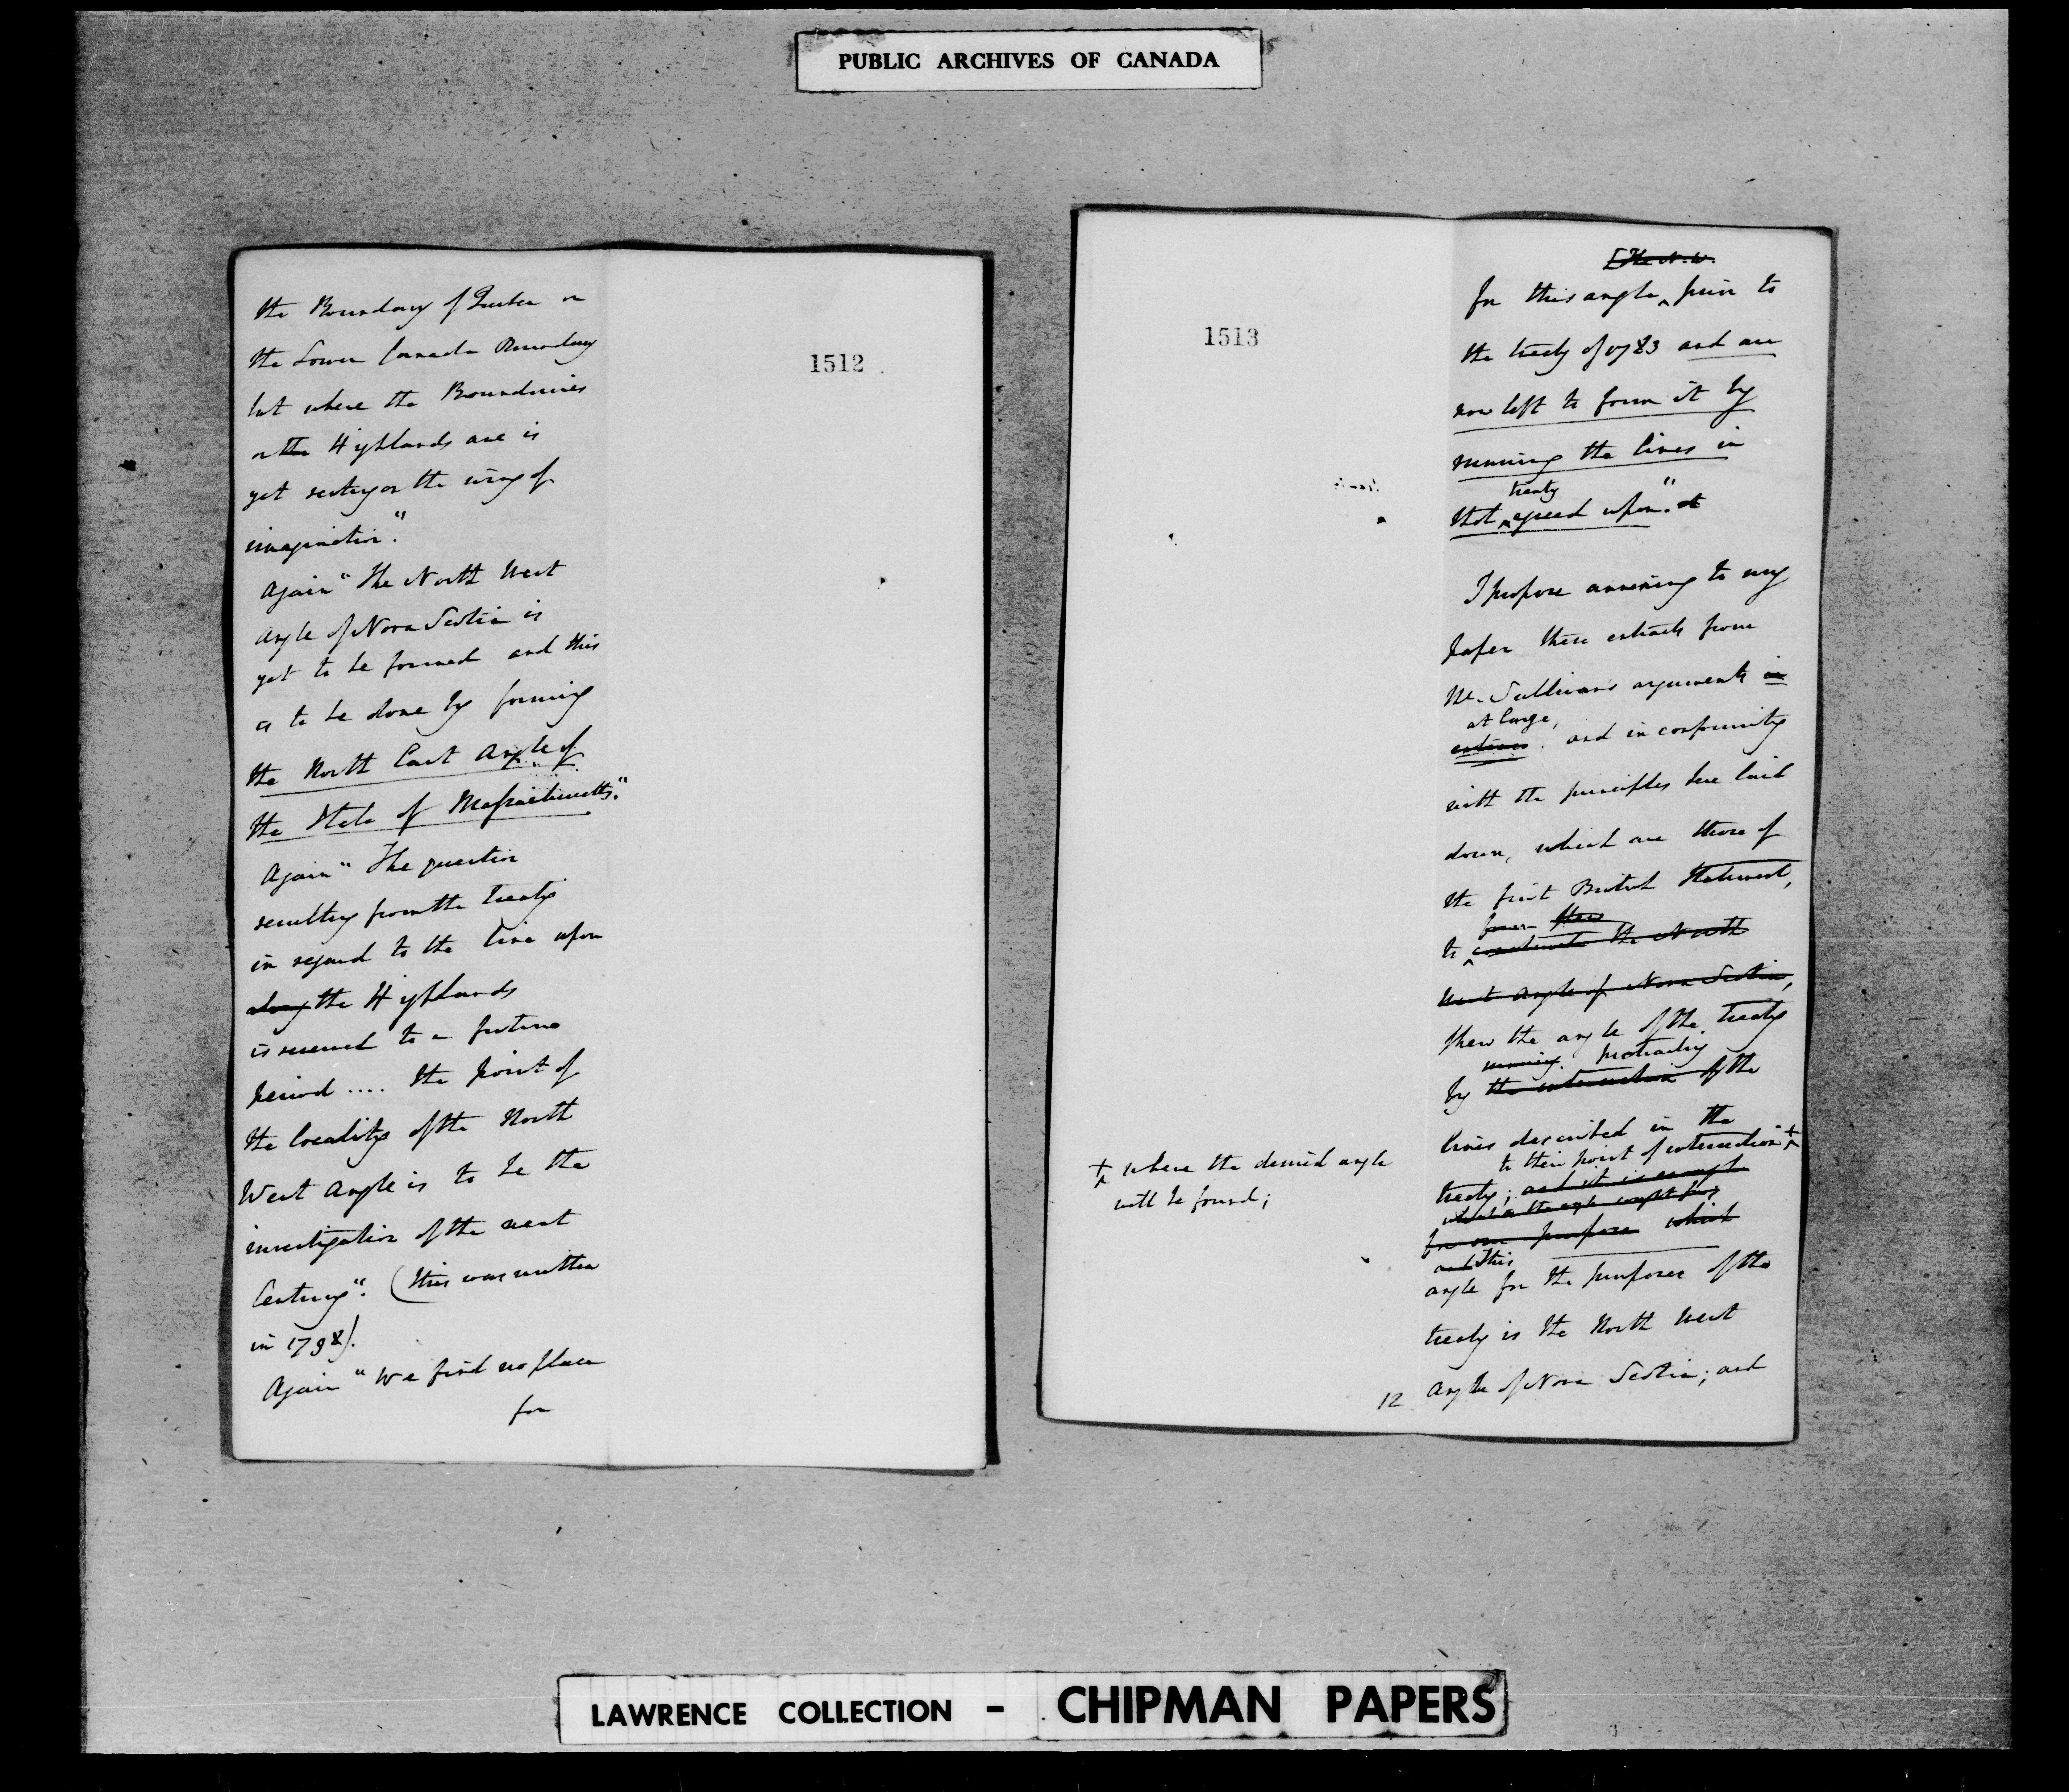 PUBLIC ARCHIVES OF CANADA
the Boundary of Quebec or
the Lower Canada Boundary
but where the Boundaries
or the Highlands are is
yet resting on the wing of
imagination."
Again "The North West
Angle of Nova Scotia is
yet to be formed and this
is to be done by forming
the North East Angle of
the State of Massachusetts."
Again "The question
resulting from the treaty
in regard to the line upon
along the Highlands
is reserved to a future
period .... the point of
the locality of the North
West Angle is to be the
investigation of the next
Century". (this was written
in 1798).
Again "We find no place
for
1512
1513
[The N.W.
for this angle prior to
the treaty of 1783 and are
now left to form it by
running the lines in
treaty
that agreed upon."
I propose annexing to my
paper these extracts from
Mr. Sullivans arguments in
at large,
and in conformity
with the principles here laid
down, which are those of
the first British Statement,
to the North
West Angle of Nova Scotia,
shew the angle of the treaty
running protracting
by the intersection of the
lines described in the
to their point of intersection +
treaty; and it is enough
what is the angle sought for
for our purpose which
and This
angle for the purposes of the
treaty is the North West
Angle of Nova Scotia; and
+ where the desired angle
will be found;
12
LAWRENCE COLLECTION - CHIPMAN PAPERS